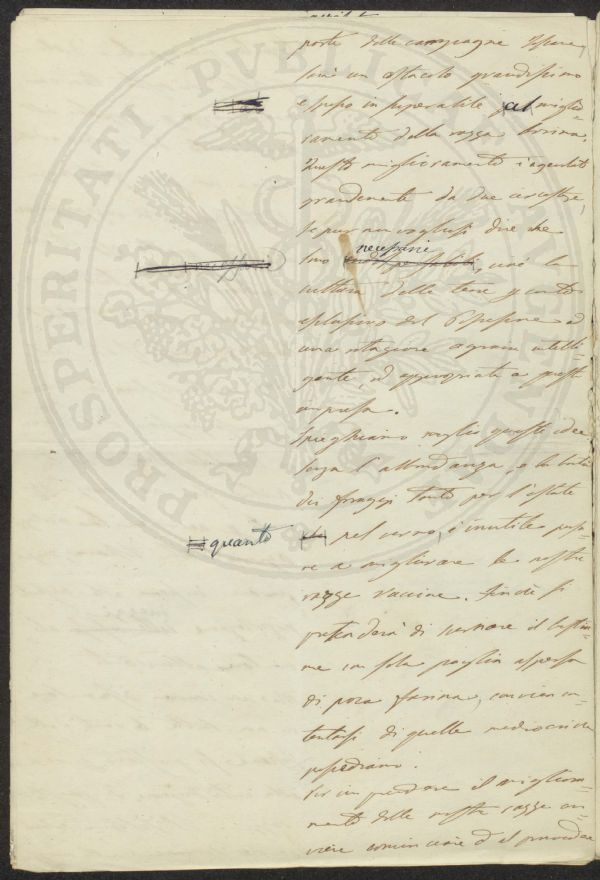 parte delle campagne Pesare,
sarà un ostacolo grandissimo
e spesso insuperabile al miglio-
ramento della razza bovina.
Questo miglioramento è agevolato
grandemente da due circostze,
se pur non vogliasi dire che
sono necessarie, cioè la
cultura delle terre per conto
esclusivo del Possessore ed
una rotazione agraria intelli-
gente, ed appropriata a questa
impresa.
Spieghiamo meglio queste idee
senza l'abbondanza, e la bontà
dei foraggi tanto per l'estate
quanto pel verno, è inutile pensa-
re a migliorare le nostre
razze vaccine. Finchè si
pretenderà di vernare il bestia-
me con sola paglia aspersa
di poca farina, convien con-
tentarsi di quelle mediocri che
possediamo.
Per intraprendere il migliora-
mento delle nostre razze con-
viene cominciare dal provvedere
PROSPERITATI PUBLICAE AUGENDAE